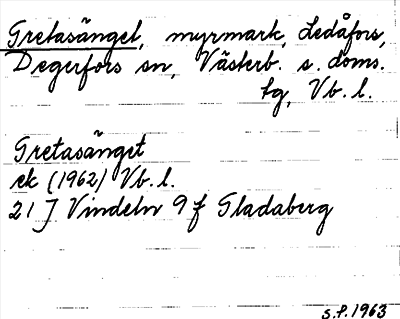 Gretasänget, myrmark, Ledåfors,
Degerfors sn, Västerb. s. doms.
tg, Vb. l.
Gretasänget
ek (1962) Vb. l.
21 J Vindeln 9 f Gladaberg
S.P. 1963